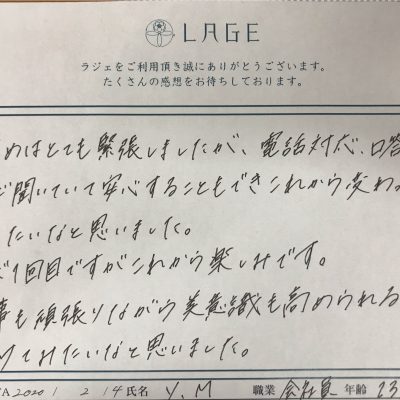 LAGE
ラジェをご利用頂き誠にありがとうございます。
たくさんの感想をお待ちしております。
めはとても緊張しましたが、電話対応、口答
聞いていて安心することもでき これから変わ
たいなと思いました。
1回目ですがこれから楽しみです。
事も頑張りながら美意識も高められる
てみたいなと思いました。
2020 1 2 14 氏名 Y.M 職業 会社員 年齢 23